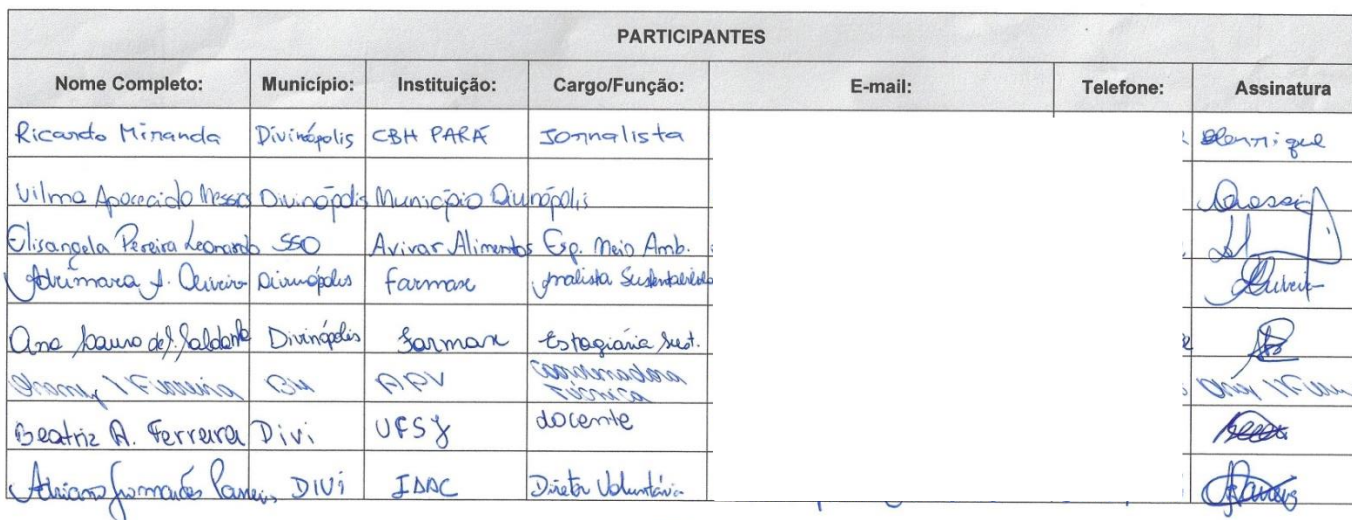 PARTICIPANTES
Nome Completo: Município: Instituição: Cargo/Função: E-mail: Telefone: Assinatura
Ricardo Miranda Divinópolis CBH PARÁ Jornalista Henrique
Vilma Aparecida Messias Divinópolis Município Divinópolis
Elisangela Pereira Leonardo SSO Avivar Alimentos Esp. Meio Amb.
Oliveira Divinópolis Farmax Analista Sustentabilidade
Ana Divinópolis Farmax Estagiária Sust.
BH APV Coordenadora
Técnica
Beatriz A. Ferreira Divi UFSJ docente
Adriano Guimarães DIVI IDAC Diretor Voluntário